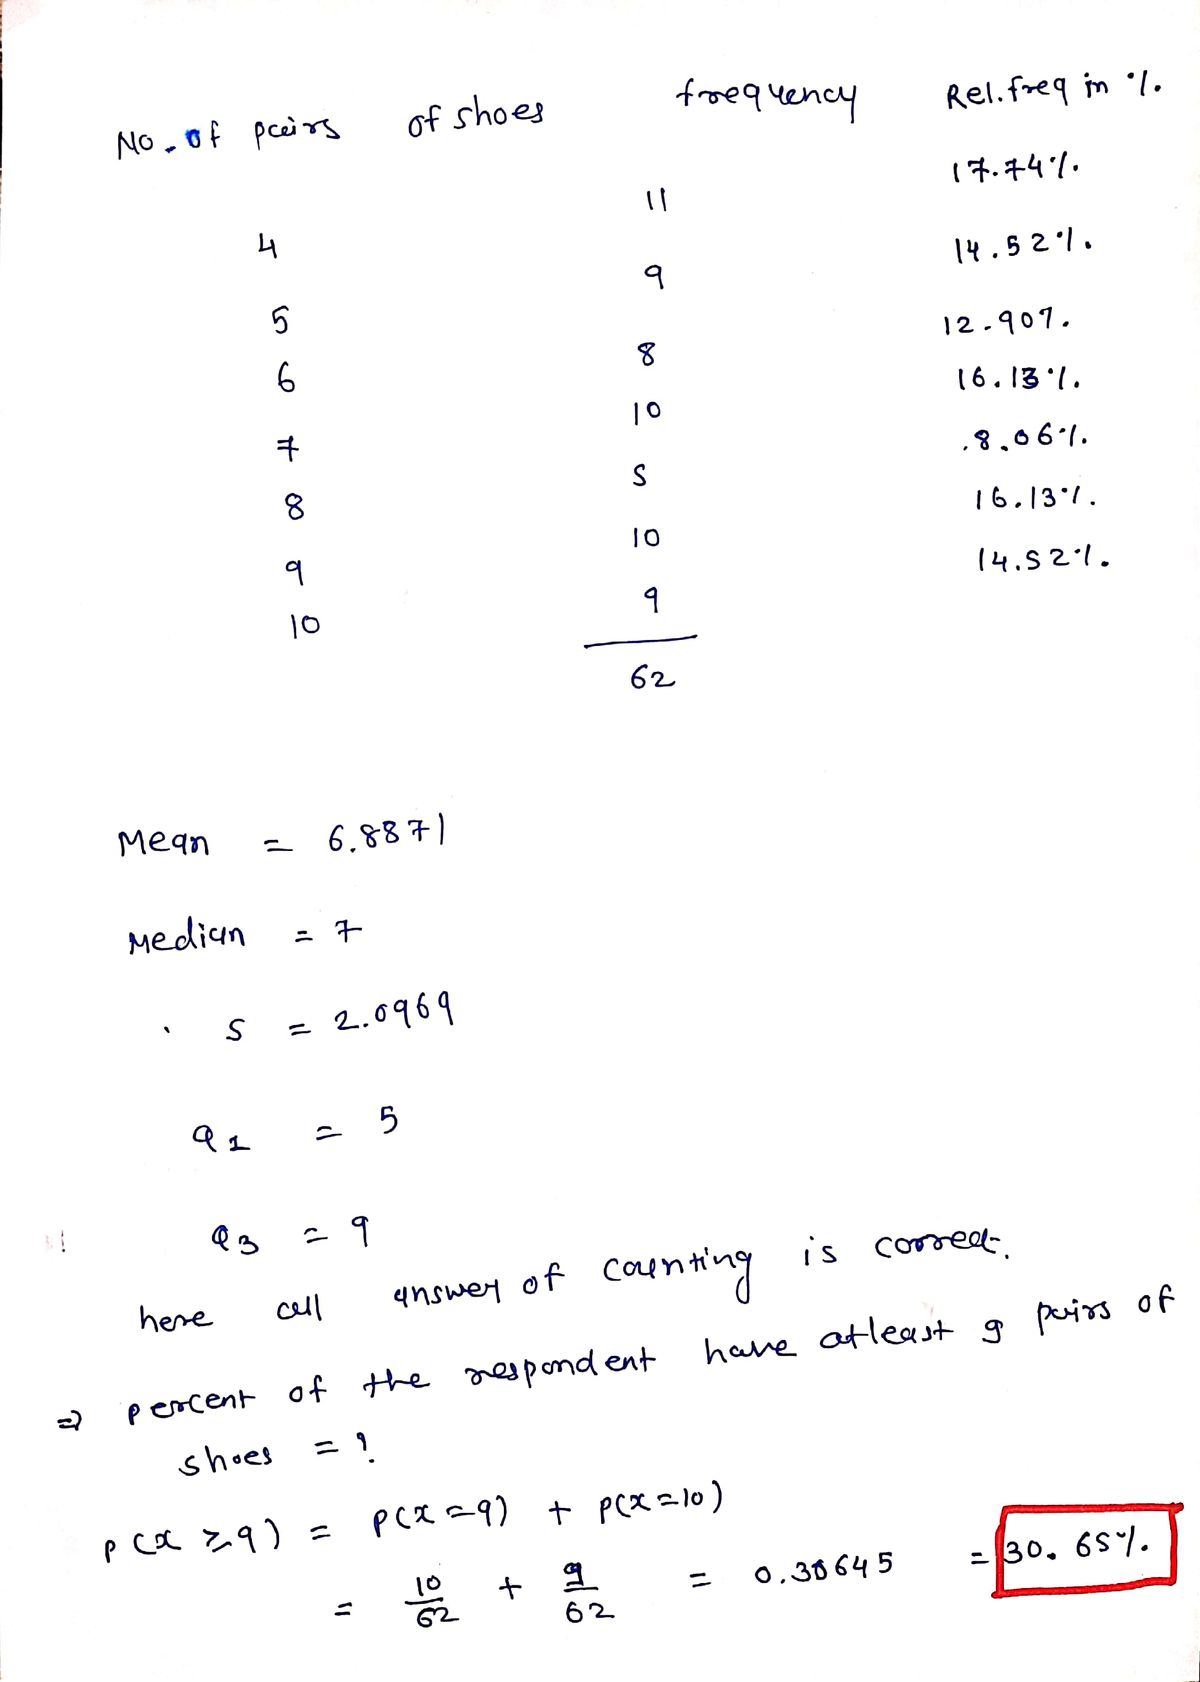 No. of pairs of shoes frequency Rel.freq in %.
4 11 17.74%.
5 9 14.52%.
6 8 12.90%.
7 10 16.13%.
8 5 8.06%.
9 10 16.13%.
10 9 14.52%.
62
Mean = 6.8871
Median = 7
s = 2.0969
Q1 = 5
Q3 = 9
here all answer of counting is correct.
⇒ percent of the respondent have atleast 9 pairs of
shoes = ?
P(x ≥ 9) = P(x = 9) + P(x = 10)
= 10/62 + 9/62 = 0.30645 = 30.65%.